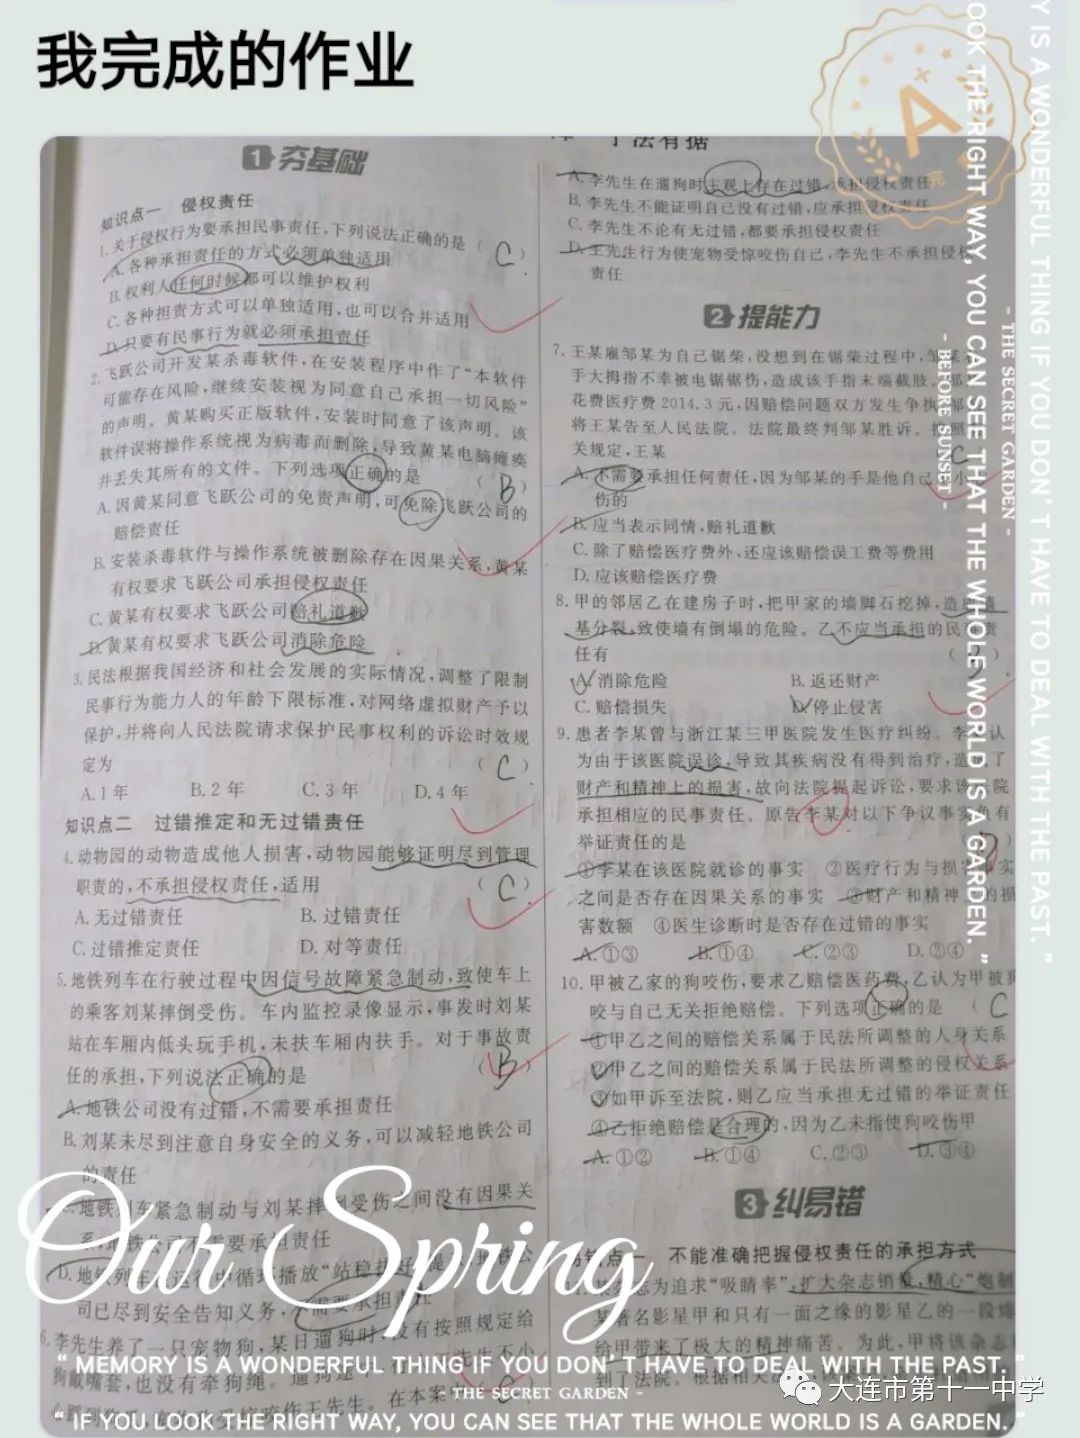 我完成的作业
A
完
1 夯基础
知识点一 侵权责任
1.关于侵权行为要承担民事责任,下列说法正确的是( C )
A.各种承担责任的方式必须单独适用
B.权利人任何时候都可以维护权利
C.各种担责方式可以单独适用,也可以合并适用
D.只要有民事行为就必须承担责任
2.飞跃公司开发某杀毒软件,在安装程序中作了“本软件
可能存在风险,继续安装视为同意自己承担一切风险”
的声明。黄某购买正版软件,安装时同意了该声明。该
软件误将操作系统视为病毒而删除,导致黄某电脑瘫痪
并丢失其所有的文件。下列选项正确的是 ( B )
A.因黄某同意飞跃公司的免责声明,可免除飞跃公司的
赔偿责任
B.安装杀毒软件与操作系统被删除存在因果关系,黄某
有权要求飞跃公司承担侵权责任
C.黄某有权要求飞跃公司赔礼道歉
D.黄某有权要求飞跃公司消除危险
3.民法根据我国经济和社会发展的实际情况,调整了限制
民事行为能力人的年龄下限标准,对网络虚拟财产予以
保护,并将向人民法院请求保护民事权利的诉讼时效规
定为 ( C )
A.1年 B.2年 C.3年 D.4年
知识点二 过错推定和无过错责任
4.动物园的动物造成他人损害,动物园能够证明尽到管理
职责的,不承担侵权责任,适用 ( C )
A.无过错责任 B.过错责任
C.过错推定责任 D.对等责任
5.地铁列车在行驶过程中因信号故障紧急制动,致使车上
的乘客刘某摔倒受伤。车内监控录像显示,事发时刘某
站在车厢内低头玩手机,未扶车厢内扶手。对于事故责
任的承担,下列说法正确的是 ( B )
A.地铁公司没有过错,不需要承担责任
B.刘某未尽到注意自身安全的义务,可以减轻地铁公司
的责任
地铁列车紧急制动与刘某摔倒受伤之间没有因果关
系,地铁公司不需要承担责任
D.地铁列车在运行中循环播放“站稳扶好”提示,地铁公
司已尽到安全告知义务,不需要承担责任
6.李先生养了一只宠物狗,某日遛狗时,没有按照规定给
狗戴嘴套,也没有牵狗绳。遛狗途中
咬伤王先生。在本案中( C )
于法有据
A.李先生在遛狗时主观上存在过错,承担侵权责任
B.李先生不能证明自己没有过错,应承担侵权责任
C.李先生不论有无过错,都要承担侵权责任
D.王先生行为使宠物受惊咬伤自己,李先生不承担侵权
责任
2 提能力
7.王某雇邹某为自己锯柴,没想到在锯柴过程中,邹某
手大拇指不幸被电锯锯伤,造成该手指末端截肢。邹
花费医疗费2014.3元,因赔偿问题双方发生争执,邹
将王某告至人民法院。法院最终判邹某胜诉。按照
关规定,王某
A.不需要承担任何责任,因为邹某的手是他自己不小
伤的
B.应当表示同情,赔礼道歉
C.除了赔偿医疗费外,还应该赔偿误工费等费用
D.应该赔偿医疗费
8.甲的邻居乙在建房子时,把甲家的墙脚石挖掉,造成墙
基分裂,致使墙有倒塌的危险。乙不应当承担的民事责
任有
A.消除危险 B.返还财产
C.赔偿损失 D.停止侵害
9.患者李某曾与浙江某三甲医院发生医疗纠纷。李某认
为由于该医院误诊,导致其疾病没有得到治疗,造成了
财产和精神上的损害,故向法院提起诉讼,要求该医院
承担相应的民事责任。原告李某对以下争议事实负有
举证责任的是
①李某在该医院就诊的事实 ②医疗行为与损害事实
之间是否存在因果关系的事实 ③财产和精神上的损
害数额 ④医生诊断时是否存在过错的事实
A.①③ B.①④ C.②③ D.②④
10.甲被乙家的狗咬伤,要求乙赔偿医药费,乙认为甲被狗
咬与自己无关拒绝赔偿。下列选项正确的是 ( C
①甲乙之间的赔偿关系属于民法所调整的人身关系
②甲乙之间的赔偿关系属于民法所调整的侵权关系
③如甲诉至法院,则乙应当承担无过错的举证责任
④乙拒绝赔偿是合理的,因为乙未指使狗咬伤甲
A.①② B.①④ C.②③ D.③④
3 纠易错
易错点一 不能准确把握侵权责任的承担方式
某杂志为追求“吸睛率”,扩大杂志销量,精心“炮制
某著名影星甲和只有一面之缘的影星乙的一段
给甲带来了极大的精神痛苦。为此,甲将该杂志
到了法院。根据相关
Our Spring
“ MEMORY IS A WONDERFUL THING IF YOU DON´T HAVE TO DEAL WITH THE PAST. ”
- THE SECRET GARDEN -
“ IF YOU LOOK THE RIGHT WAY, YOU CAN SEE THAT THE WHOLE WORLD IS A GARDEN. ”
大连市第十一中学
OOK THE RIGHT WAY, YOU CAN SEE THAT THE WHOLE WORLD IS A GARDEN. ”
- BEFORE SUNSET -
- THE SECRET GARDEN -
Y IS A WONDERFUL THING IF YOU DON´T HAVE TO DEAL WITH THE PAST. ”